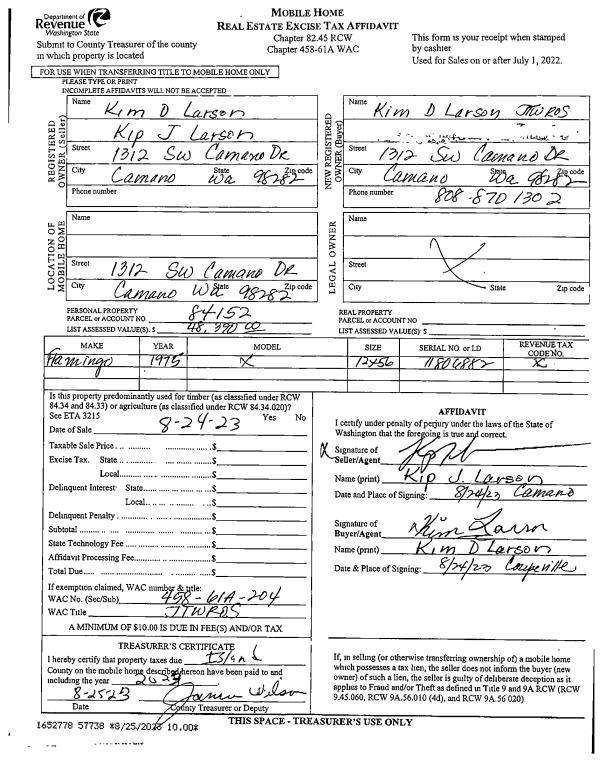 Department of
Revenue
Washington State
Submit to County Treasurer of the county
in which property is located
MOBILE HOME
REAL ESTATE EXCISE TAX AFFIDAVIT
Chapter 82.45 RCW
Chapter 458-61A WAC
This form is your receipt when stamped
by cashier
Used for Sales on or after July 1, 2022.
FOR USE WHEN TRANSFERRING TITLE TO MOBILE HOME ONLY
PLEASE TYPE OR PRINT
INCOMPLETE AFFIDAVITS WILL NOT BE ACCEPTED
REGISTERED OWNER (Seller)
Name Kim D Larson
Kip J Larson
Street 1312 SW Camano DR
City Camano State Wa 98282 Zip code
Phone number
NEW REGISTERED OWNER (Buyer)
Name Kim D Larson JTWROS
Street 1312 SW Camano DR
City Camano State Wa 98282 Zip code
Phone number 808-870 1302
LOCATION OF MOBILE HOME
Name
Street 1312 SW Camano DR
City Camano State Wa 98282 Zip code
LEGAL OWNER
Name
Street
City State Zip code
PERSONAL PROPERTY
PARCEL or ACCOUNT NO. 84152
LIST ASSESSED VALUE(S): $ 48,390.00
REAL PROPERTY
PARCEL or ACCOUNT NO
LIST ASSESSED VALUE(S): $
MAKE YEAR MODEL SIZE SERIAL NO. or I.D REVENUE TAX CODE NO.
Flamingo 1975 X 12x56 11806882 X
Is this property predominantly used for timber (as classified under RCW
84.34 and 84.33) or agriculture (as classified under RCW 84.34.020)?
See ETA 3215 Yes No
Date of Sale 8-24-23
Taxable Sale Price $
Excise Tax. State $
Local $
Delinquent Interest· State $
Local $
Delinquent Penalty $
Subtotal $
State Technology Fee $
Affidavit Processing Fee $
Total Due $
If exemption claimed, WAC number & title:
WAC No. (Sec/Sub) 458-61A-204
WAC Title JTWROS
A MINIMUM OF $10.00 IS DUE IN FEE(S) AND/OR TAX
AFFIDAVIT
I certify under penalty of perjury under the laws of the State of
Washington that the foregoing is true and correct.
X Signature of
Seller/Agent
Name (print) Kip J. Larson
Date and Place of Signing: 8/24/23 Camano
Signature of
Buyer/Agent Kim Larson
Name (print) Kim D Larson
Date & Place of Signing: 8/24/23 Coupeville
TREASURER'S CERTIFICATE
I hereby certify that property taxes due Island
County on the mobile home described hereon have been paid to and
including the year 2023
8-25-23 Wilson
Date County Treasurer or Deputy
If, in selling (or otherwise transferring ownership of) a mobile home
which possesses a tax lien, the seller does not inform the buyer (new
owner) of such a lien, the seller is guilty of deliberate deception as it
applies to Fraud and/or Theft as defined in Title 9 and 9A RCW (RCW
9.45.060, RCW 9A.56.010 (4d), and RCW 9A.56 020)
THIS SPACE - TREASURER'S USE ONLY
1652778 57738 *8/25/2023 10.00*